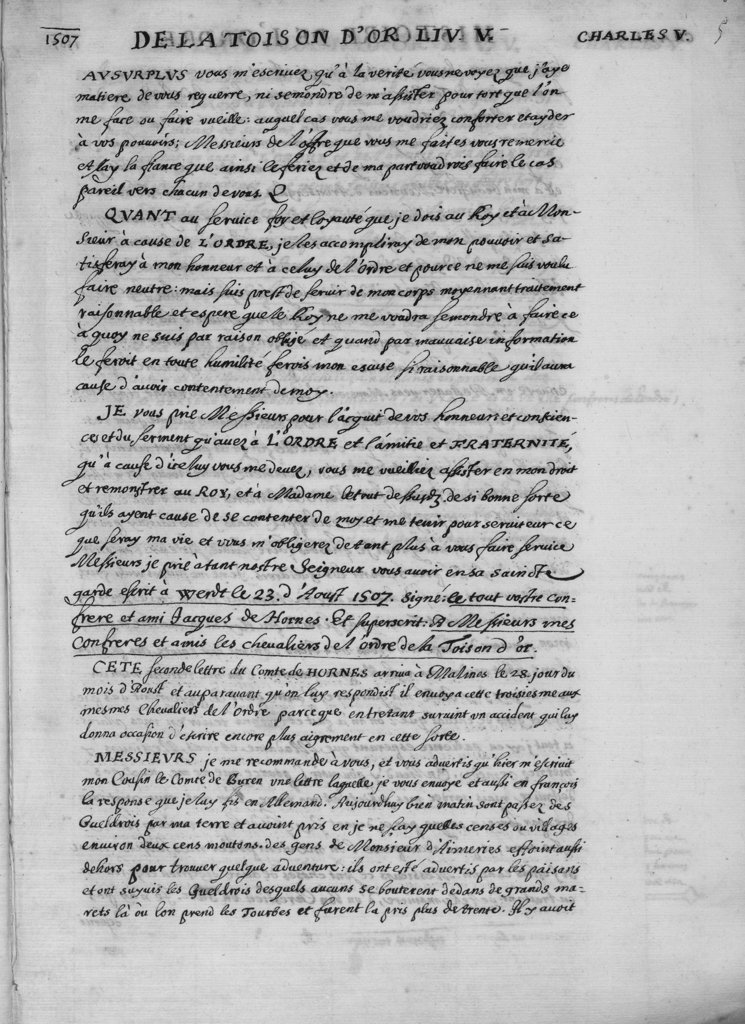 1507 DE LA TOISON D'OR LIV. V. CHARLES V. 5
AVSVRPLVS vous m'escrivez qu'à la verité vous ne voyez que j'aye
matiere de vous requerre, ni semondre de m'assister pour tort que l'on
me face ou faire vueille: auquel cas vous me voudriez conforter et ayder
à vos pouvoirs; Messieurs de l'offre que vous me faites vous remercie
et ay la fiance que ainsi le feriez et de ma part voudrois faire le cas
pareil vers chacun de vous.
QVANT au service foy et loyauté que je dois au Roy et à Mon-
sieur à cause de L'ORDRE, je les accompliray de mon pouvoir et sa-
tisferay à mon honneur et à celuy de l'Ordre et pource ne me suis voulu
faire neutre: mais suis prest de servir de mon corps moyennant traittement
raisonnable et espere que le Roy ne me voudra semondre à faire ce
à quoy ne suis par raison obligé et quand par mauvaise information
le feroit en toute humilité ferois mon excuse si raisonnable qu'il aura
cause d'avoir contentement de moy.
JE vous prie Messieurs pour l'acquit de vos honneurs et conscien-
ces et du serment qu'avez à L'ORDRE et l'amitié et FRATERNITÉ,
qu'à cause d'iceluy vous me devez, vous me vueilliez assister en mon droit
et remonstrer au ROY, et à Madame le tout dessusd. de si bonne sorte
qu'ils ayent cause de se contenter de moy et me tenir pour serviteur ce
que seray ma vie et vous m'obligerez de tant plus à vous faire service
Messieurs je prie à tant nostre Seigneur vous avoir en sa saincte
garde escrit à Werdt le 23. d'Aoust 1507. signé: le tout vostre con-
frere et ami Jacques de Hornes. Et superscrit: A Messieurs mes
Confreres et amis les chevaliers de l'ordre de la Toison d'or.
CETE seconde lettre du Comte de HORNES arriva à Malines le 28. jour du
mois d'Aoust et auparavant qu'on luy respondist il envoya cette troisiesme aux
mesmes Chevaliers de l'Ordre parce que entretant survint un accident qui luy
donna occasion d'escrire encore plus aigrement en cette sorte.
MESSIEVRS je me recommande à vous, et vous advertis qu'hier m'escrivit
mon Cousin le Comte de Buren une lettre laquelle je vous envoye et aussi en françois
la response que je luy fis en Allemand. Aujourdhuy bien matin sont passez des
Gueldrois par ma terre et avoint pris en je ne sçay quelles censes ou villages
environ deux cens moutons. des gens de Monsieur d'Aimeries estoint aussi
dehors pour trouver quelque adventure: ils ont esté advertis par les païsans
et ont suyvis les Gueldrois desquels aucuns se bouterent dedans de grands ma-
rets là ou lon prend les Tourbes et furent la pris plus de trente. Il y avoit